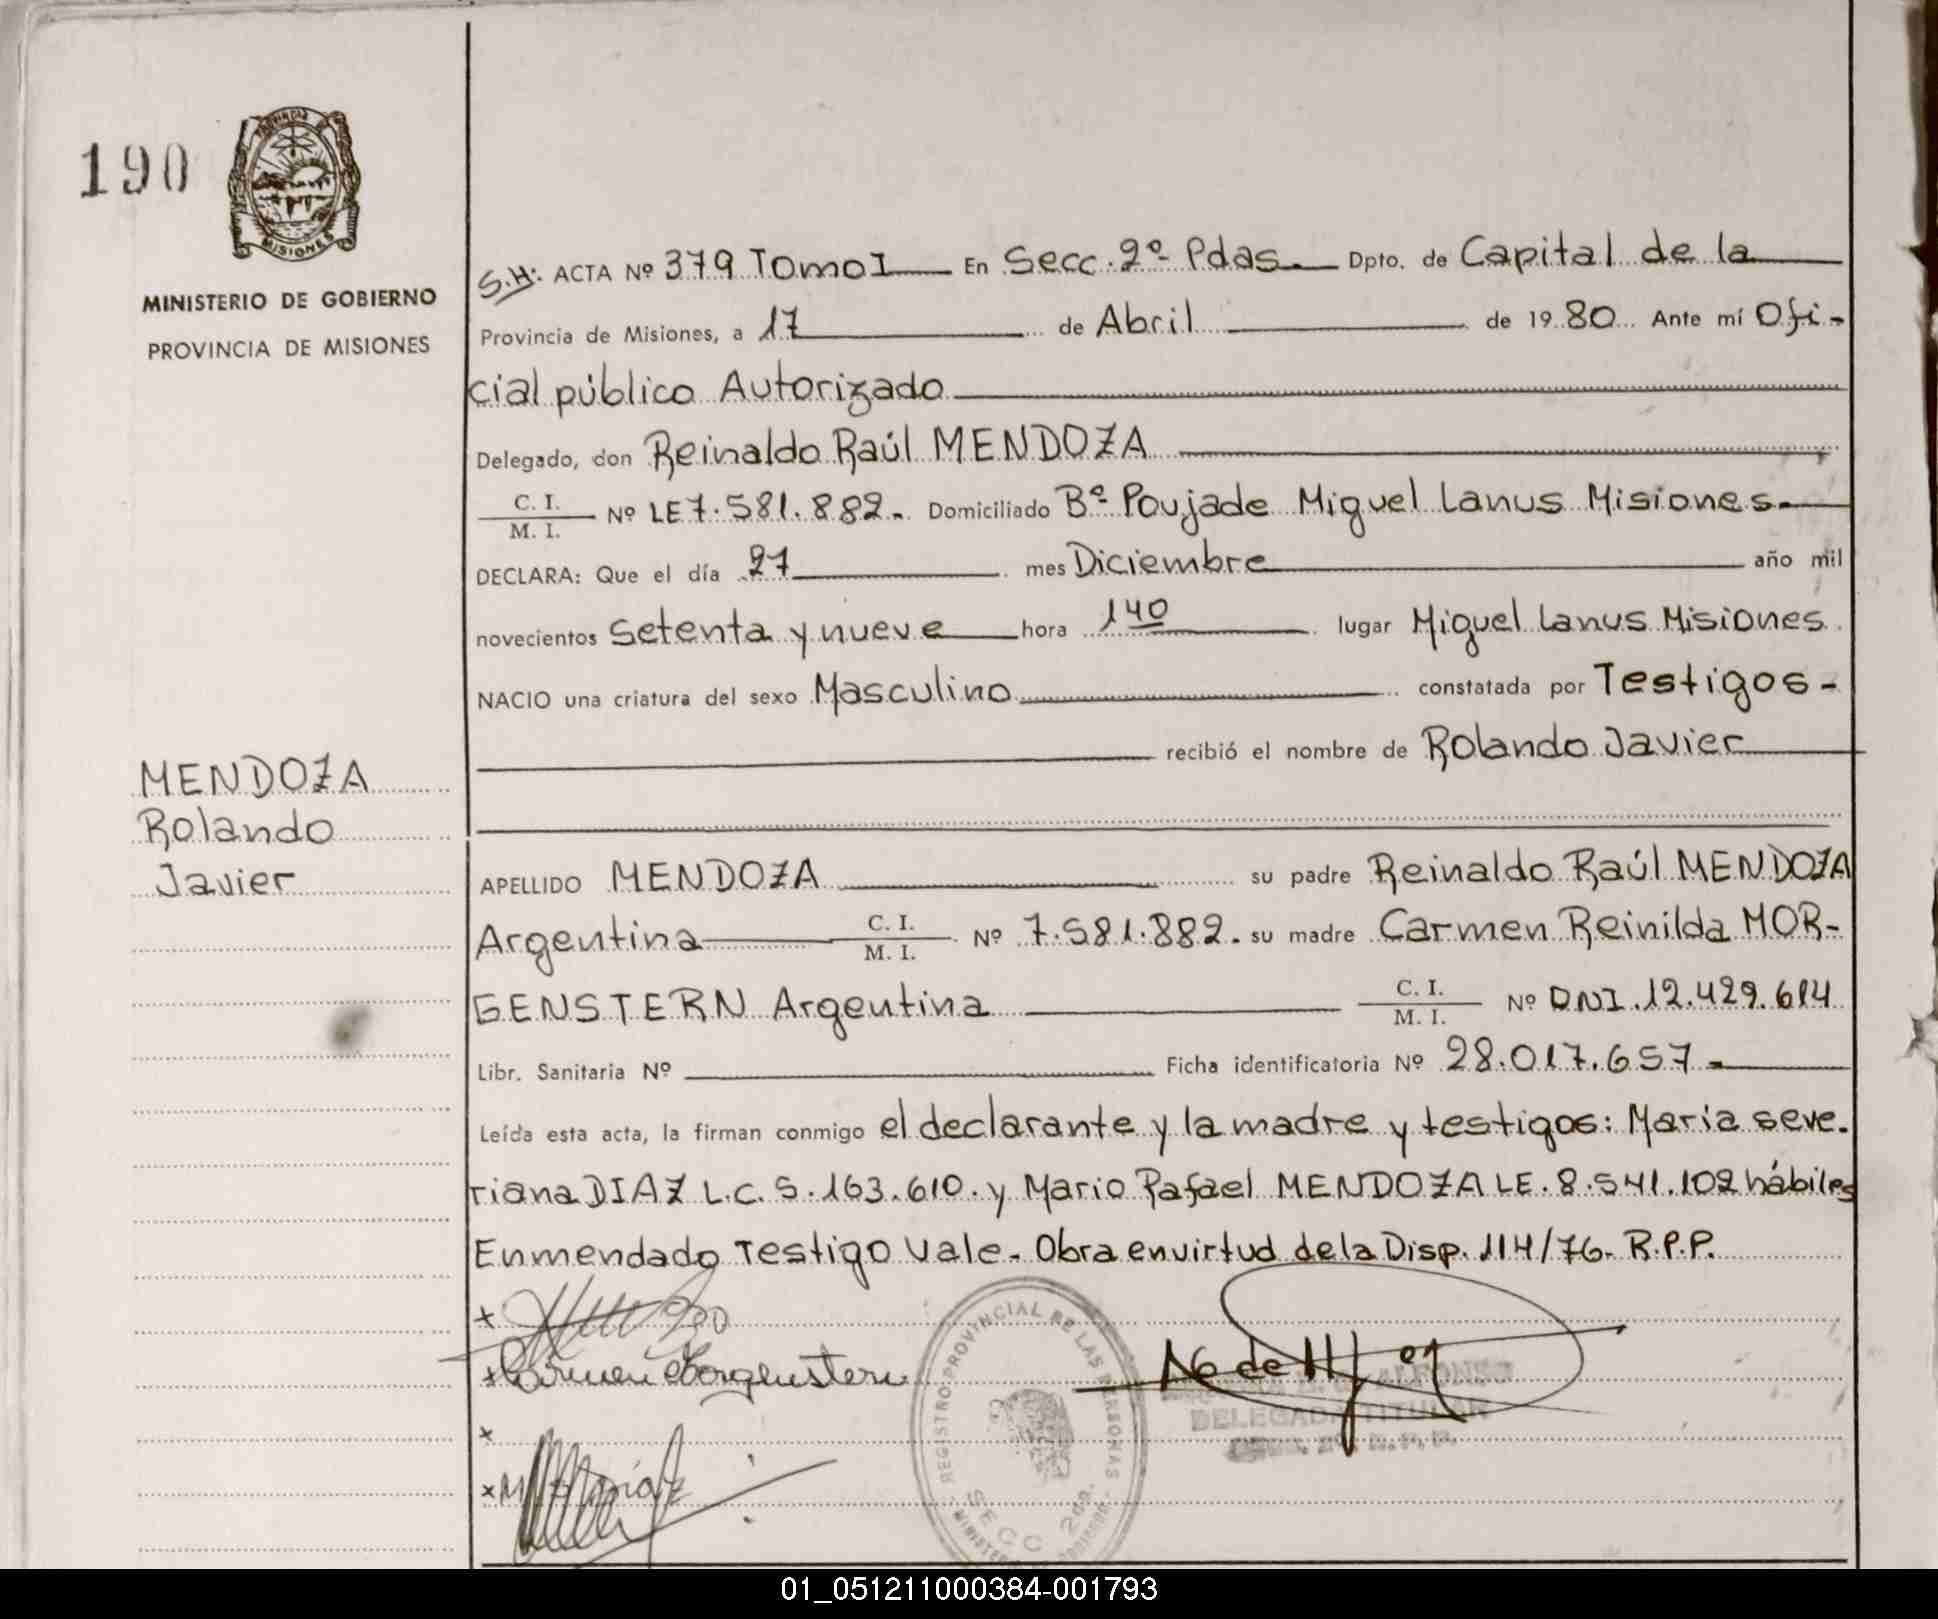 190
PROVINCIA DE
MISIONES
MINISTERIO DE GOBIERNO
PROVINCIA DE MISIONES
S.H: ACTA Nº 379 Tomo I En Secc. 2º Pdas. Dpto. de Capital de la
Provincia de Misiones, a 17 de Abril de 1980 Ante mí Ofi-
cial público Autorizado
Delegado, don Reinaldo Raúl MENDOZA
C. I.
M. I. Nº LE 7.581.882. Domiciliado Bº Poujade Miguel Lanus Misiones.
DECLARA: Que el día 27 mes Diciembre año mil
novecientos Setenta y nueve hora 1 40 lugar Miguel Lanus Misiones
NACIO una criatura del sexo Masculino constatada por Testigos-
recibió el nombre de Rolando Javier
MENDOZA
Rolando
Javier
APELLIDO MENDOZA su padre Reinaldo Raúl MENDOZA
Argentina C. I. M. I. Nº 7.581.882. su madre Carmen Reinilda MOR-
GENSTERN Argentina C. I. M. I. Nº DNI.12.429.614
Libr. Sanitaria Nº Ficha identificatoria Nº 28.017.657.
Leída esta acta, la firman conmigo el declarante y la madre y testigos: Maria seve.
riana DIAZ L.C. 5.163.610. y Mario Rafael MENDOZA LE. 8.541.102 hábiles
Enmendado Testigo Vale. Obra en virtud de la Disp. 114/76. R.P.P.
x
x Carmen Morgenstern
x
x M Diaz
REGISTRO PROVINCIAL DE LAS PERSONAS
SECC 2da.
ALFONSO
DELEGADA TITULAR
01_051211000384-001793